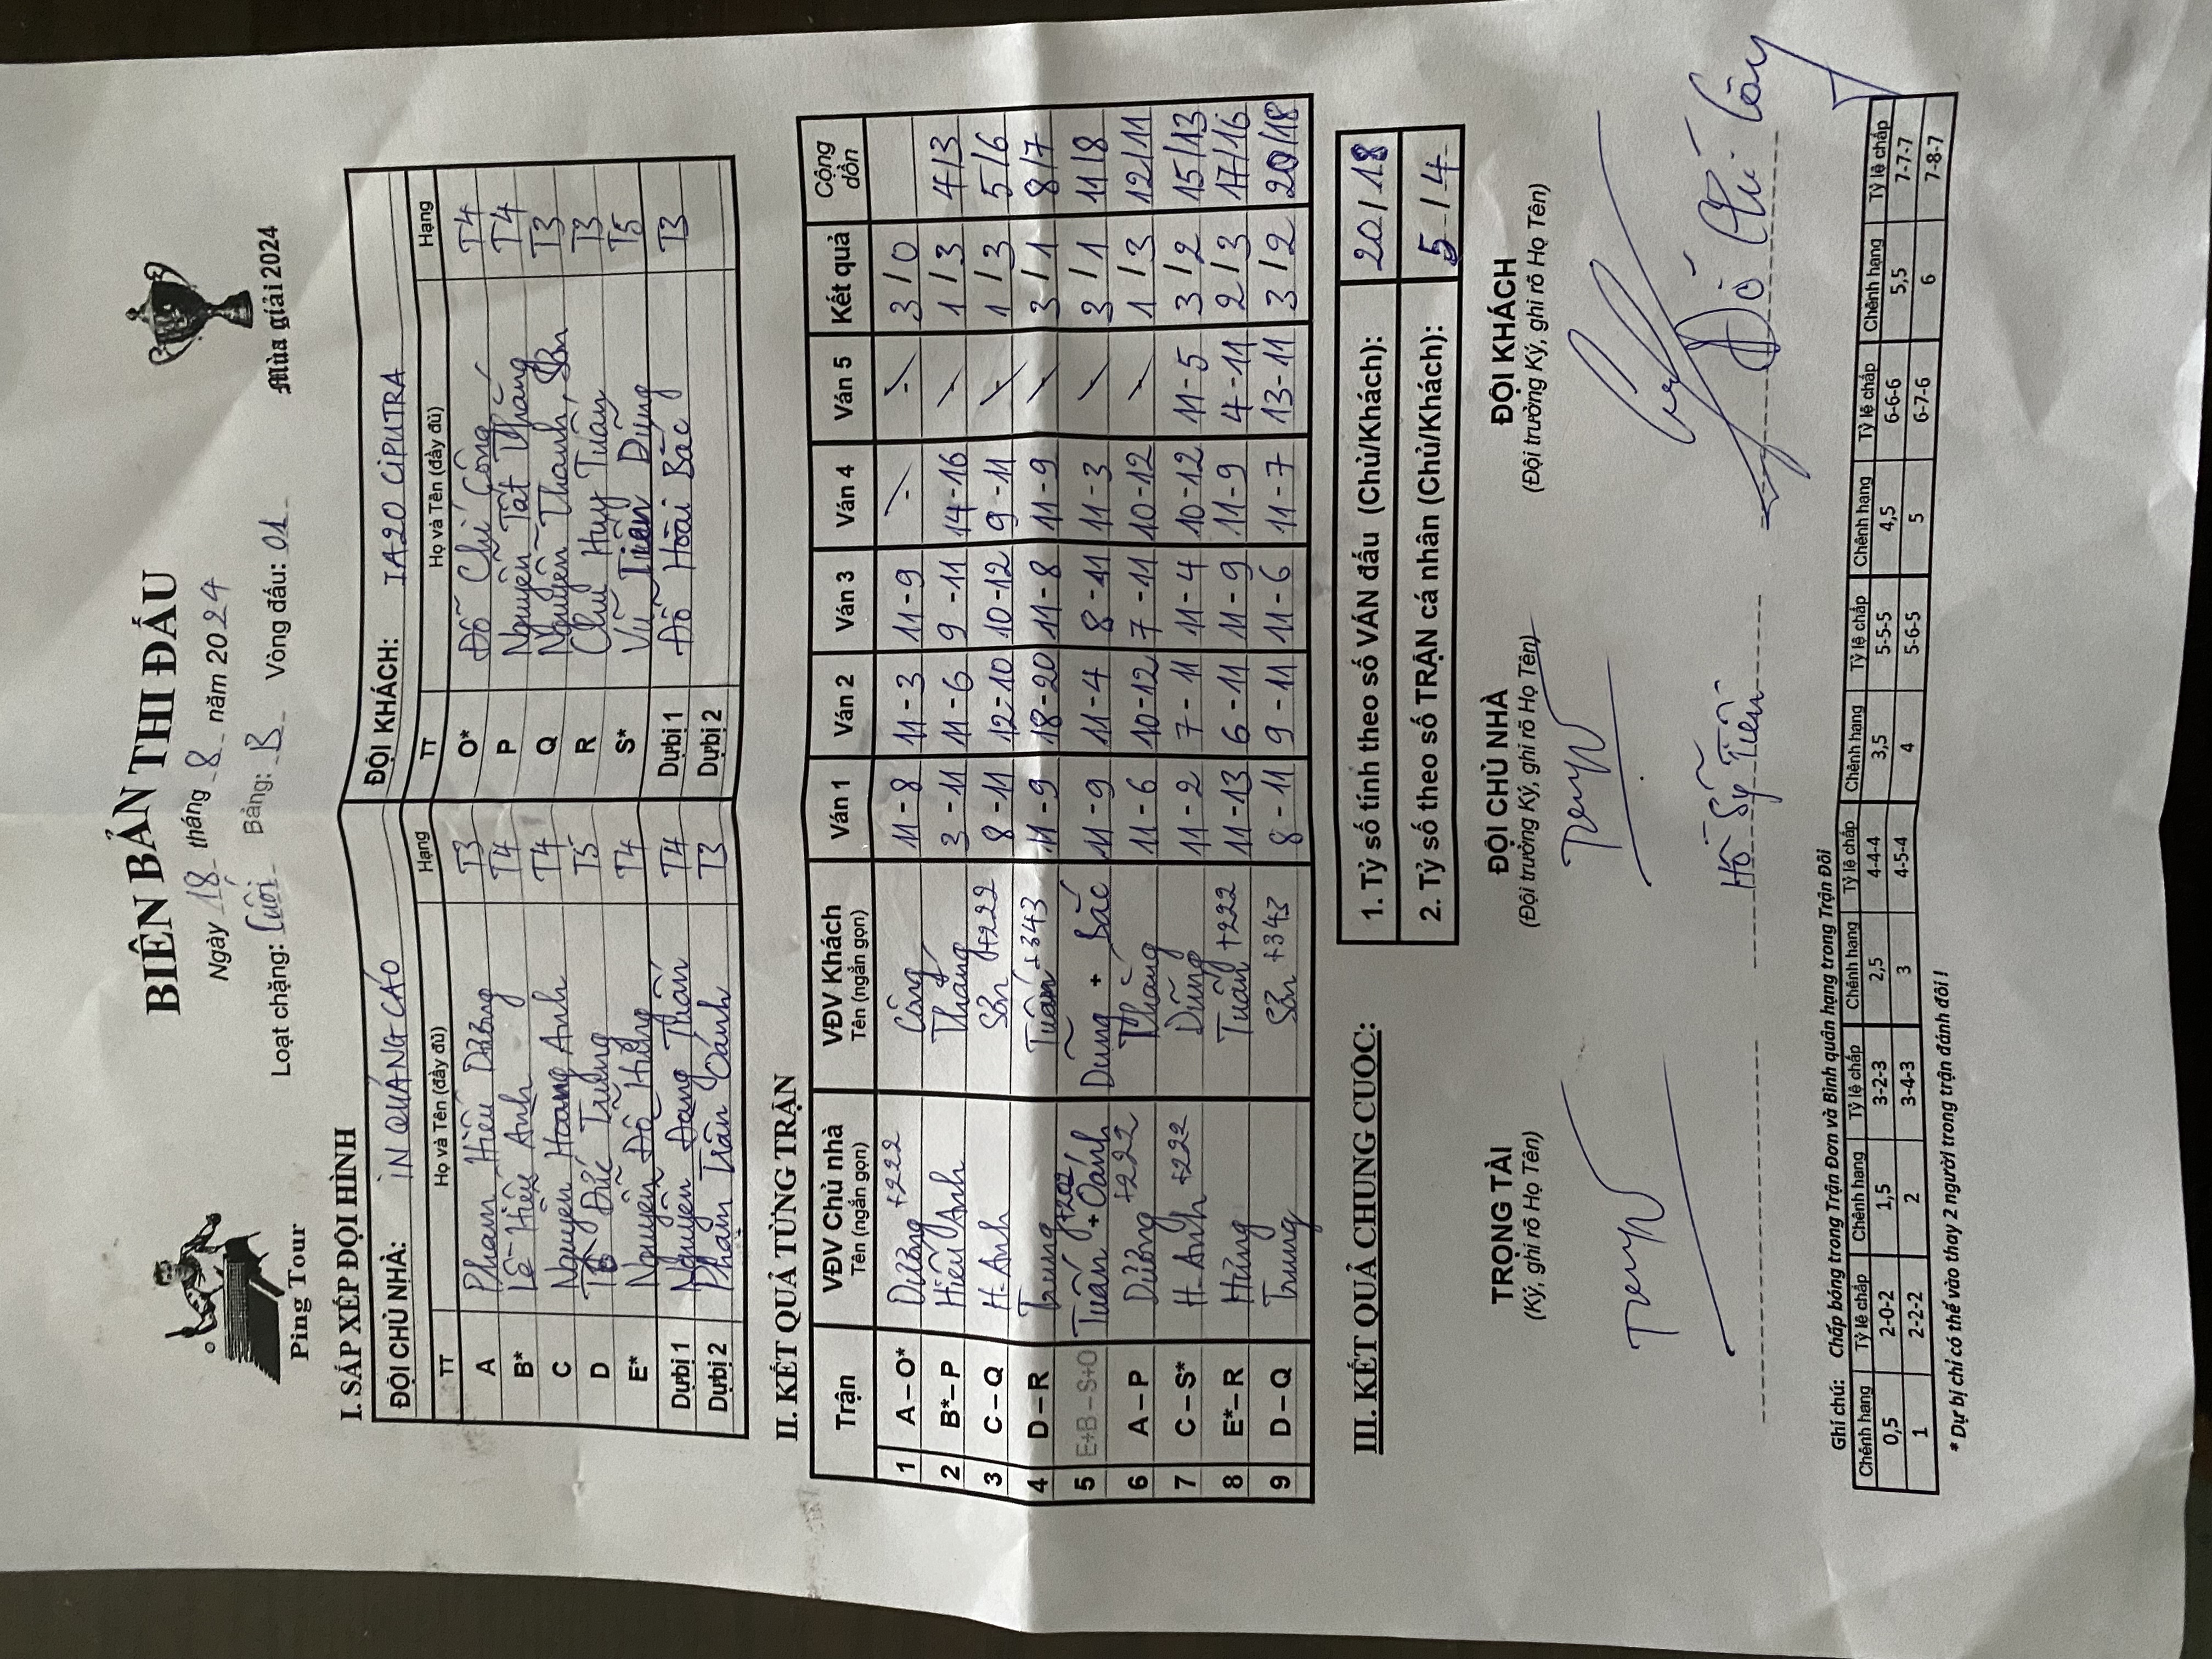 BIÊN BẢN THI ĐẤU
Ngày 18 tháng 8 năm 2024
Loạt chặng: Cuối Bảng: B Vòng đấu: 01
Ping Tour
Mùa giải 2024
I. SẮP XẾP ĐỘI HÌNH
ĐỘI CHỦ NHÀ: IN QUẢNG CÁO ĐỘI KHÁCH: IA20 CIPUTRA
TT Họ và Tên (đầy đủ) Hạng TT Họ và Tên (đầy đủ) Hạng
A Phạm Hiếu Dương T3 O* Đỗ Chí Công T4
B* Lê Hiếu Anh T4 P Nguyễn Tất Thắng T4
C Nguyễn Hoàng Anh T4 Q Nguyễn Thanh Sơn T3
D Đức Trung T5 R Chu Huy Tuấn T3
E* Nguyễn Đỗ Hùng T4 S* Vũ Tiến Dũng T5
Dự bị 1 Nguyễn Đang Tuấn T4 Dự bị 1 Đỗ Hoài Bắc T3
Dự bị 2 Phạm Trần Oánh T3 Dự bị 2
II. KẾT QUẢ TỪNG TRẬN
Trận VĐV Chủ nhà Tên (ngắn gọn) VĐV Khách Tên (ngắn gọn) Ván 1 Ván 2 Ván 3 Ván 4 Ván 5 Kết quả Cộng dồn
1 A – O* Dương +222 Công 11 - 8 11 - 3 11 - 9 - - 3 / 0
2 B* – P Hiếu Anh Thắng 3 - 11 11 - 6 9 - 11 14 - 16 - 1 / 3 4/3
3 C – Q H.Anh Sơn +222 8 - 11 12 - 10 10 - 12 9 - 11 - 1 / 3 5/6
4 D – R Trung Tuấn +343 11 - 9 18 - 20 11 - 8 11 - 9 - 3 / 1 8/7
5 E+B – S+O Tuấn + Oánh +202 Dũng + Bắc 11 - 9 11 - 4 8 - 11 11 - 3 - 3 / 1 11/8
6 A – P Dương +222 Thắng 11 - 6 10 - 12 7 - 11 10 - 12 - 1 / 3 12/11
7 C – S* H.Anh +222 Dũng 11 - 2 7 - 11 11 - 4 10 - 12 11 - 5 3 / 2 15/13
8 E* – R Hùng Tuấn +222 11 - 13 6 - 11 11 - 9 11 - 9 4 - 11 2 / 3 17/16
9 D – Q Trung Sơn +343 8 - 11 9 - 11 11 - 6 11 - 7 13 - 11 3 / 2 20/18
III. KẾT QUẢ CHUNG CUỘC:
1. Tỷ số tính theo số VÁN đấu (Chủ/Khách): 20 / 18
2. Tỷ số theo số TRẬN cá nhân (Chủ/Khách): 5 / 4
TRỌNG TÀI ĐỘI CHỦ NHÀ ĐỘI KHÁCH
(Ký, ghi rõ Họ Tên) (Đội trưởng Ký, ghi rõ Họ Tên) (Đội trưởng Ký, ghi rõ Họ Tên)
Hồ Sỹ Tiến Đỗ Chí Công
Ghi chú: Chấp bóng trong Trận Đơn và Bình quân hạng trong Trận Đôi
Chênh hạng Tỷ lệ chấp Chênh hạng Tỷ lệ chấp Chênh hạng Tỷ lệ chấp Chênh hạng Tỷ lệ chấp Chênh hạng Tỷ lệ chấp Chênh hạng Tỷ lệ chấp
0,5 2-0-2 1,5 3-2-3 2,5 4-4-4 3,5 5-5-5 4,5 6-6-6 5,5 7-7-7
1 2-2-2 2 3-4-3 3 4-5-4 4 5-6-5 5 6-7-6 6 7-8-7
* Dự bị chỉ có thể vào thay 2 người trong trận đánh đôi !